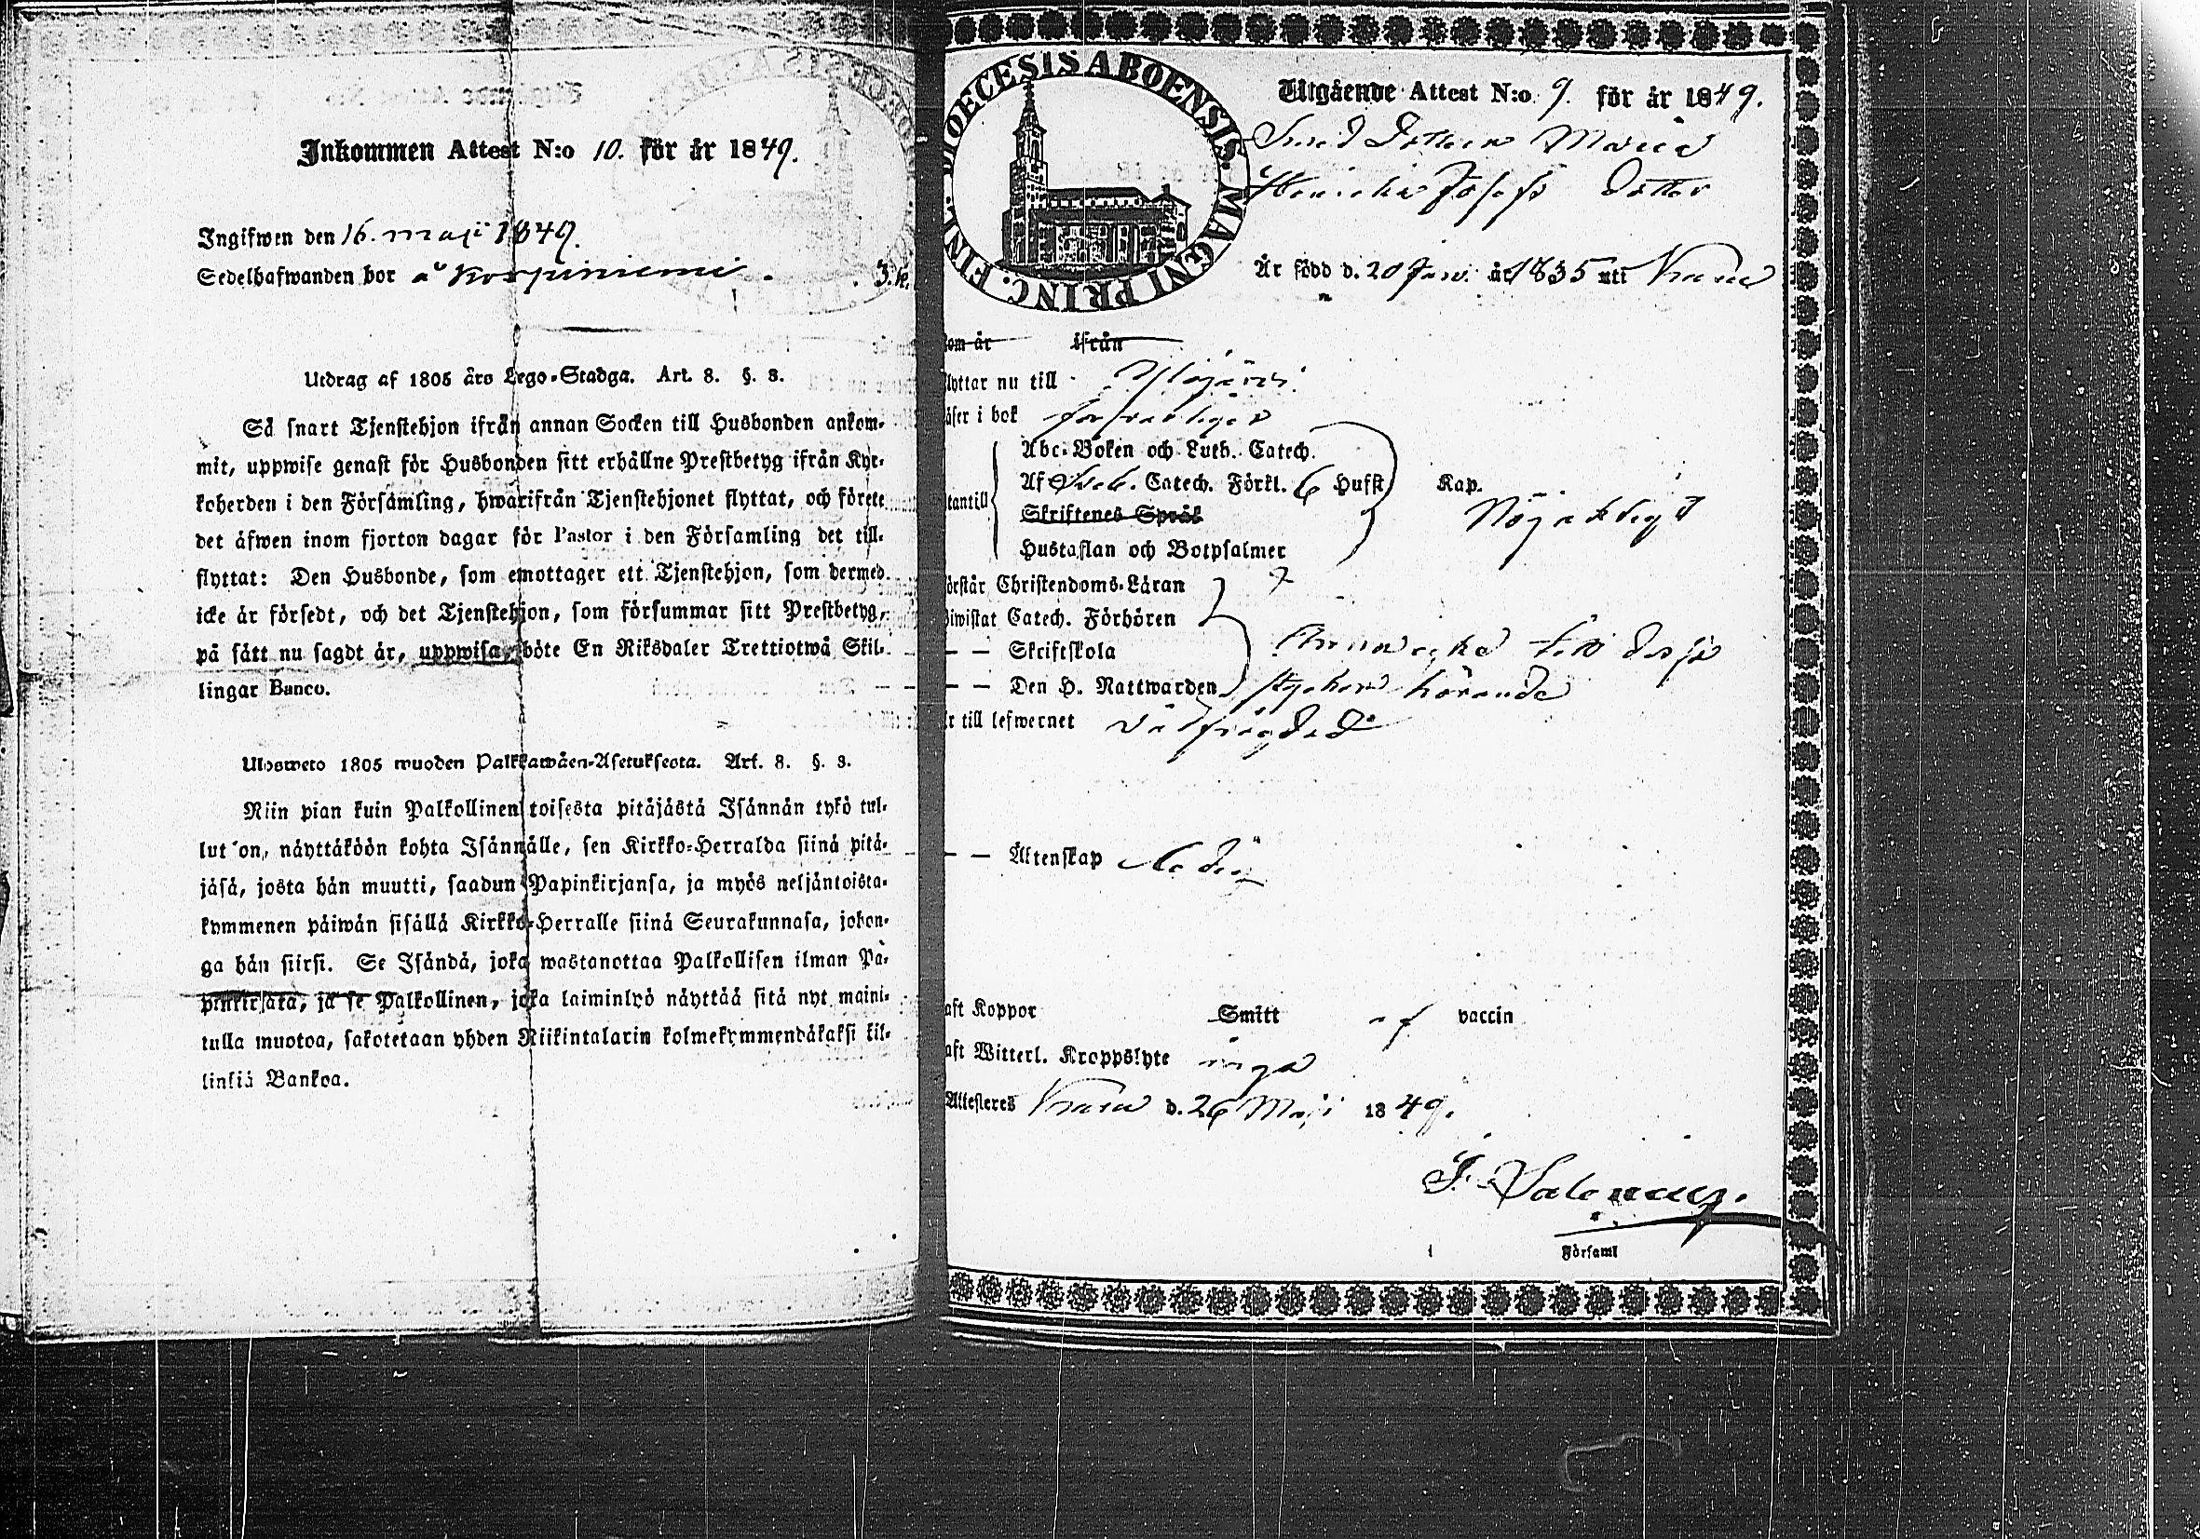 Inkommen Attest N:o 10. för år 1849.
Ingifwen den 16. maji 1849.
Sedelhafwanden bor å Korpiniemi. J.k.
Utdrag af 1805 års Lego-Stadga. Art. 8. §. 8.
Så snart Tjenstehjon ifrån annan Socken till Husbonden ankom-
mit, uppwise genast för Husbonden sitt erhållne Prestbetyg ifrån Kyr-
koherden i den Församling, hwarifrån Tjenstehjonet flyttat, och förete
det äfwen inom fjorton dagar för Pastor i den Församling det till-
flyttat: Den Husbonde, som emottager ett Tjenstehjon, som dermed
icke är försedt, och det Tjenstehjon, som försummar sitt Prestbetyg,
på sätt nu sagdt är, uppwisa, böte En Riksdaler Trettiotwå Skil-
lingar Banco.
Ulosweto 1805 wuoden Palkkawäen-Asetuksesta. Art. 8. §. 8.
Niin pian kuin Palkollinen toisesta pitäjästä Isännän tykö tul-
lut on, näyttäköön kohta Isännälle, sen Kirkko-Herralda siinä pitä-
jäsä, josta hän muutti, saadun Papinkirjansa, ja myös neljäntoista-
kymmenen päiwän sisällä Kirkko-Herralle siinä Seurakunnasa, johon-
ga hän siirsi. Se Isändä, joka wastanottaa Palkollisen ilman Pa-
pinkirjata, ja se Palkollinen, joka laiminlyö näyttää sitä nyt maini-
tulla muotoa, sakotetaan yhden Riikintalarin kolmekymmendäkaksi kil-
linsiä Bankoa.
DIOECESIS ABOENSIS. MAGNI PRINC. FINL.
Utgående Attest N:o 9. för år 1849.
Dottern Maria
Josefs Dotter
Är född d. 20 Janv. år 1835 uti
kom år ifrån
flyttar nu till Ylöjärvi
läser i bok försvarligen
Abc-Boken och Luth. Catech.
Af Sveb. Catech. Förkl. 6 Hufst Kap.
utantill Nöjaktigt
Skriftenes Språk
Hustaflan och Botpsalmer
förstår Christendoms-Läran
biwistat Catech. Förhören
— — Skriftskola till dessa
— — Den H. Nattwarden stycken hörande
är till lefwernet välfrägdad
— — Äktenskap ledig
haft Koppor Smitt af vaccin
haft Witterl. Kroppslyte inga
Attesteres d. 26 Maji 1849.
Församl